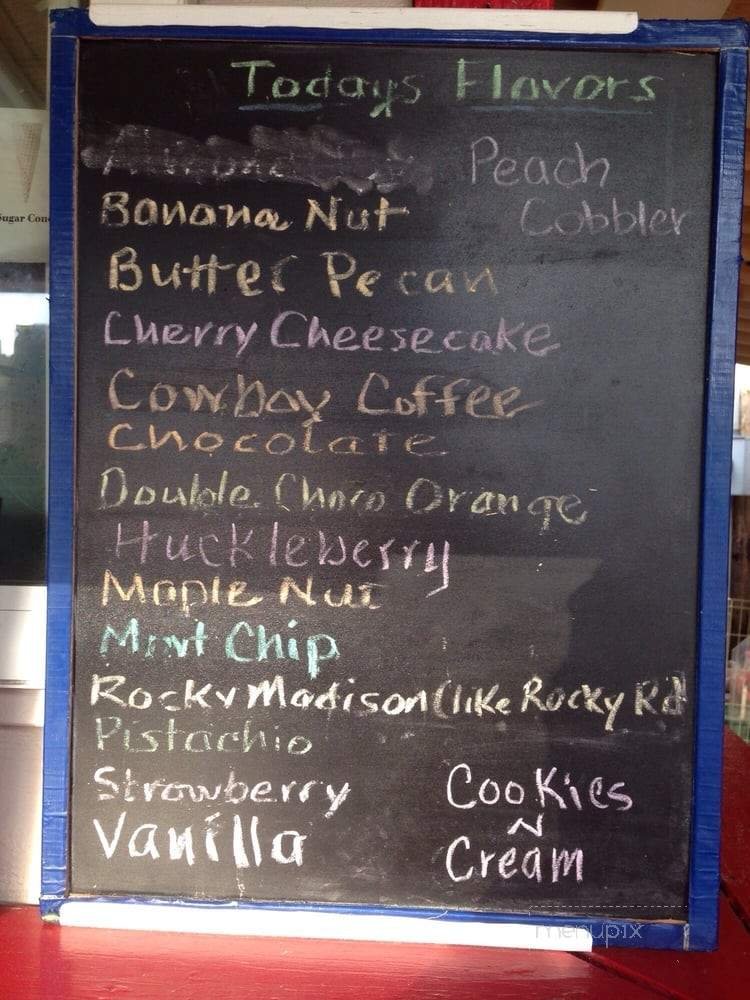 Todays Flavors
Peach
Cobbler
Banana Nut
Butter Pecan
Cherry Cheesecake
Cowboy Coffee
Chocolate
Double Choco Orange
Huckleberry
Maple Nut
Mint Chip
Rocky Madison (like Rocky Rd
Pistachio
Strawberry
Vanilla
Cookies
N
Cream
Sugar Con
menupix